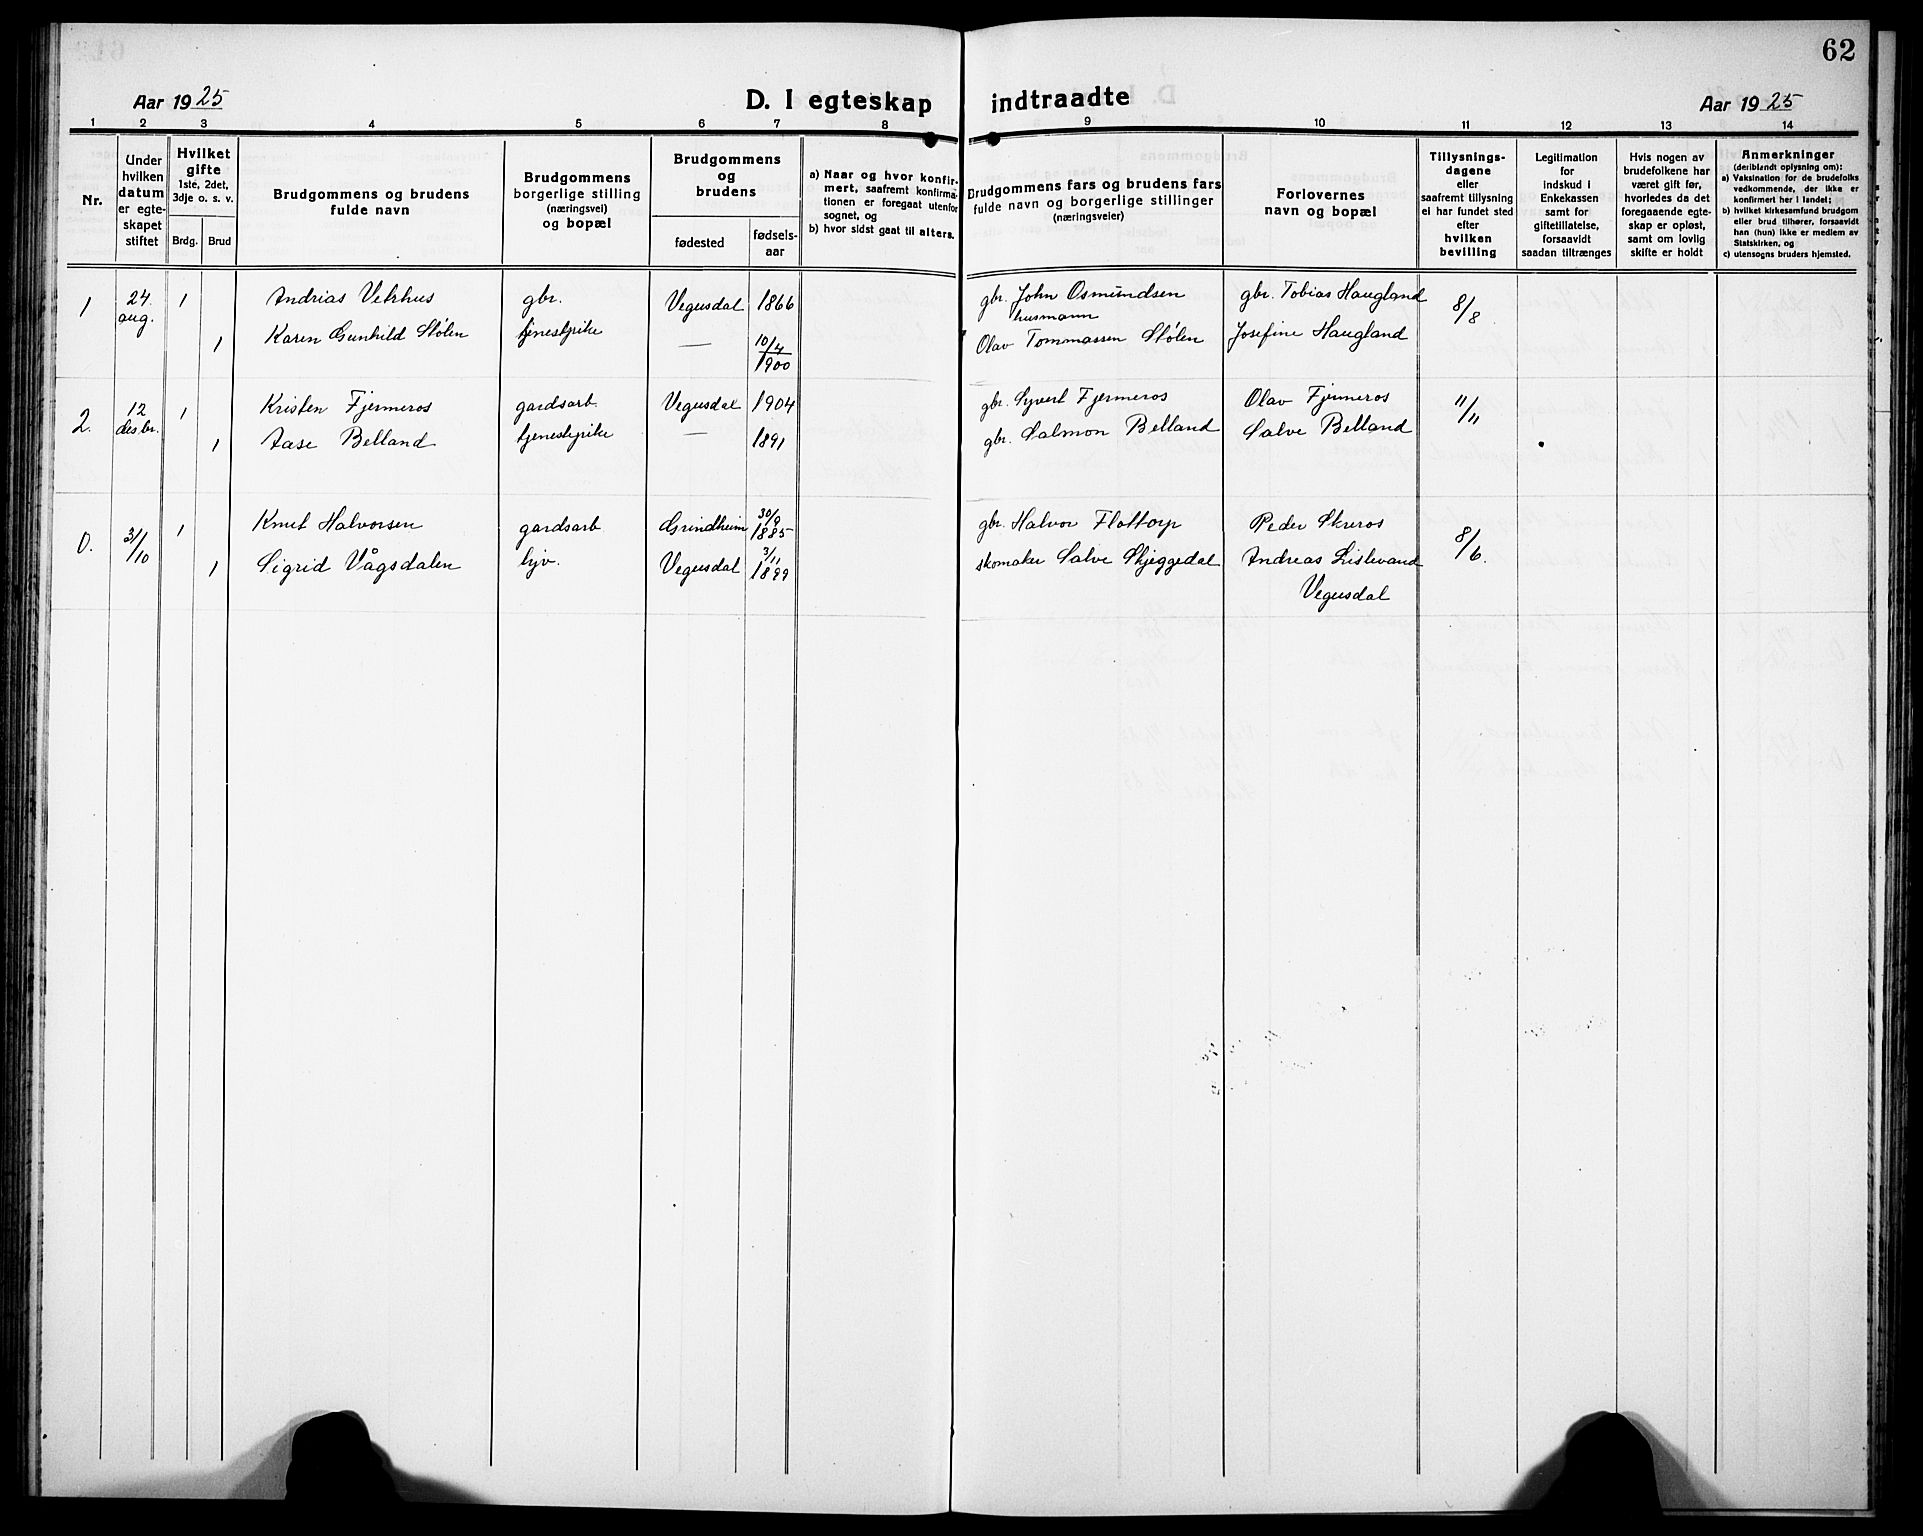 62
Aar 1925
D. I egteskap indtraadte
Aar 1925
1 2 3 4 5 6 7 8 9 10 11 12 13 14
Nr.
Under
hvilken
datum
er egte-
skapet
stiftet
Hvilket
gifte
1ste, 2det,
3dje o. s. v.
Brdg. Brud
Brudgommens og brudens
fulde navn
Brudgommens
borgerlige stilling
(næringsvei)
og bopæl
Brudgommens
og
brudens
fødested
fødsels-
aar
a) Naar og hvor konfir-
mert, saafremt konfirma-
tionen er foregaat utenfor
sognet, og
b) hvor sidst gaat til alters.
Brudgommens fars og brudens fars
fulde navn og borgerlige stillinger
(næringsveier)
Forlovernes
navn og bopæl
Tillysnings-
dagene
eller
saafremt tillysning
ei har fundet sted
efter
hvilken
bevilling
Legitimation
for
indskud i
Enkekassen
samt for
giftetillatelse,
forsaavidt
saadan tiltrænges
Hvis nogen av
brudefolkene har
været gift før,
hvorledes da det
foregaaende egte-
skap er opløst,
samt om lovlig
skifte er holdt
Anmerkninger
(deriblandt oplysning om):
a) Vaksination for de brudefolks
vedkommende, der ikke er
konfirmert her i landet;
b) hvilket kirkesamfund brudgom
eller brud tilhører, forsaavidt
han (hun) ikke er medlem av
Statskirken, og
c) utensogns bruders hjemsted.
1 24. aug. 1 Andrias Vehhus gbr. Vegusdal 1866 gbr. John Osmundsen gbr. Tobias Haugland 8/8
husmann
1 Karen Gunhild Stølen tjenestepike — 10/4 1900 Olav Tommassen Stølen Josefine Haugland
2. 12 des.br. 1 Kristen Fjermeros gardsarb. Vegusdal 1904 gbr. Syvert Fjermeros Olav Fjermeros 11/11
1 Aase Belland tjenestepike — 1891 gbr. Salmon Belland Salve Belland
0. 31/10 1 Knut Halvorsen gardsarb Grindheim 30/9 1885 gbr. Halvor Flottorp Peder Skreros 8/6.
1 Sigrid Vågsdalen syv. Vegusdal 3/11 1899 skomaker Salve Skjeggedal Andreas Lislevand
Vegusdal